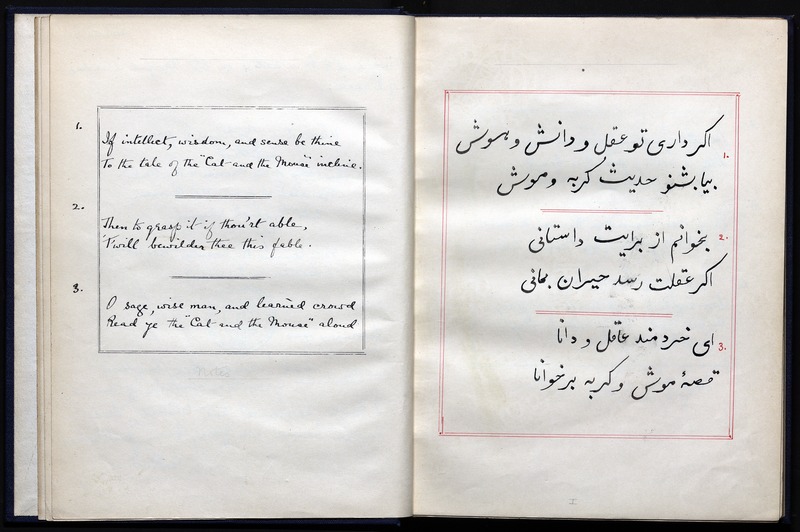 1.
If intellect, wisdom, and sense be thine
To the tale of the "Cat and the Mouse" incline.
2.
Then to grasp it if thou'rt able,
'Twill bewilder thee this fable.
3.
O sage, wise man, and learnèd crowd
Read ye the "Cat and the Mouse" aloud
اکر داری تو عقل و دانش و هوش
1.
بیا بشنو حدیث کربه و موش
بخوانم از برایت داستانی
2.
اکر عقلت رسد حیران بمانی
ای خردمند عاقل و دانا
3.
قصهٔ موش و کربه برخوانا
I